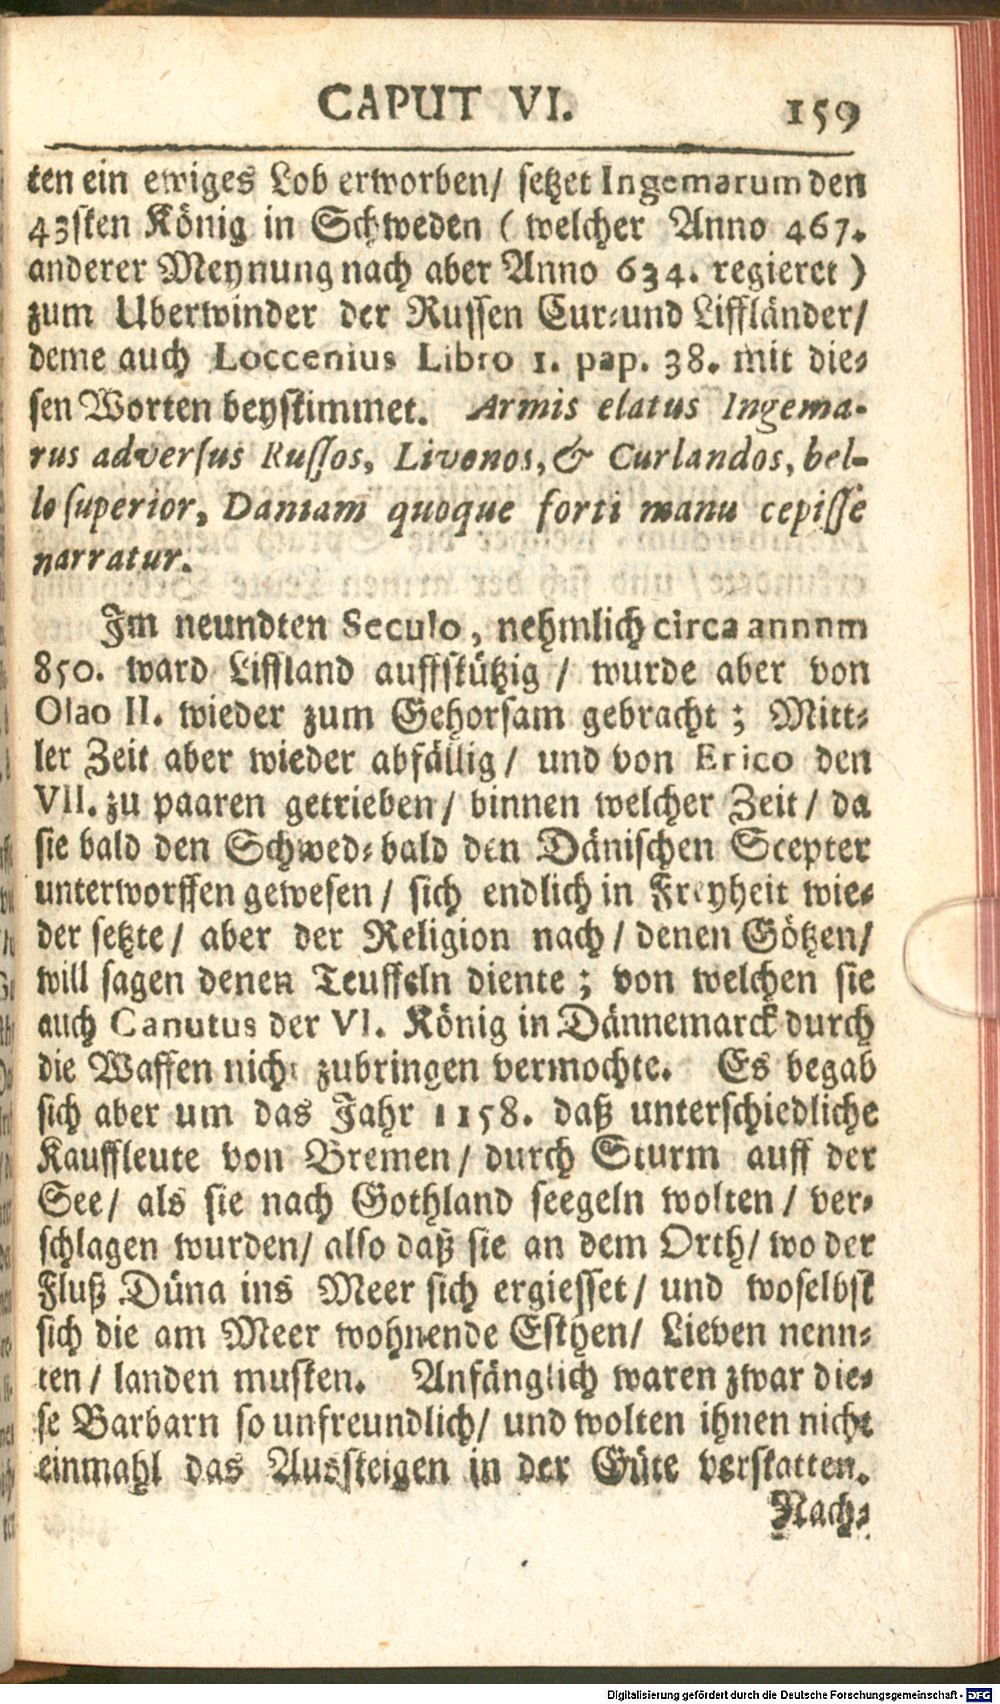 CAPUT VI. 159
ten ein ewiges Lob erworben/ setzet Ingemarum den
43sten König in Schweden ( welcher Anno 467.
anderer Meynung nach aber Anno 634. regieret )
zum Uberwinder der Russen Cur-und Liffländer/
deme auch Loccenius Libro 1. pap. 38. mit die-
sen Worten beystimmet. Armis elatus Ingema-
rus adversus Russos, Livonos, & Curlandos, bel-
lo superior, Daniam quoque forti manu cepisse
narratur.
Im neundten Seculo, nehmlich circa annnm
850. ward Liffland auffstützig / wurde aber von
Olao II. wieder zum Gehorsam gebracht ; Mitt-
ler Zeit aber wieder abfällig / und von Erico den
VII. zu paaren getrieben / binnen welcher Zeit / da
sie bald den Schwed- bald den Dänischen Scepter
unterworffen gewesen / sich endlich in Freyheit wie-
der setzte / aber der Religion nach / denen Götzen/
will sagen denen Teuffeln diente ; von welchen sie
auch Canutus der VI. König in Dännemarck durch
die Waffen nicht zubringen vermochte. Es begab
sich aber um das Jahr 1158. daß unterschiedliche
Kauffleute von Bremen / durch Sturm auff der
See/ als sie nach Gothland seegeln wolten / ver-
schlagen wurden/ also daß sie an dem Orth/ wo der
Fluß Düna ins Meer sich ergiesset / und woselbst
sich die am Meer wohnende Esthen/ Lieven nenn-
ten / landen musten. Anfänglich waren zwar die-
se Barbarn so unfreundlich/ und wolten ihnen nicht
einmahl das Aussteigen in der Güte verstatten.
Nach-
Digitalisierung gefördert durch die Deutsche Forschungsgemeinschaft - DFG